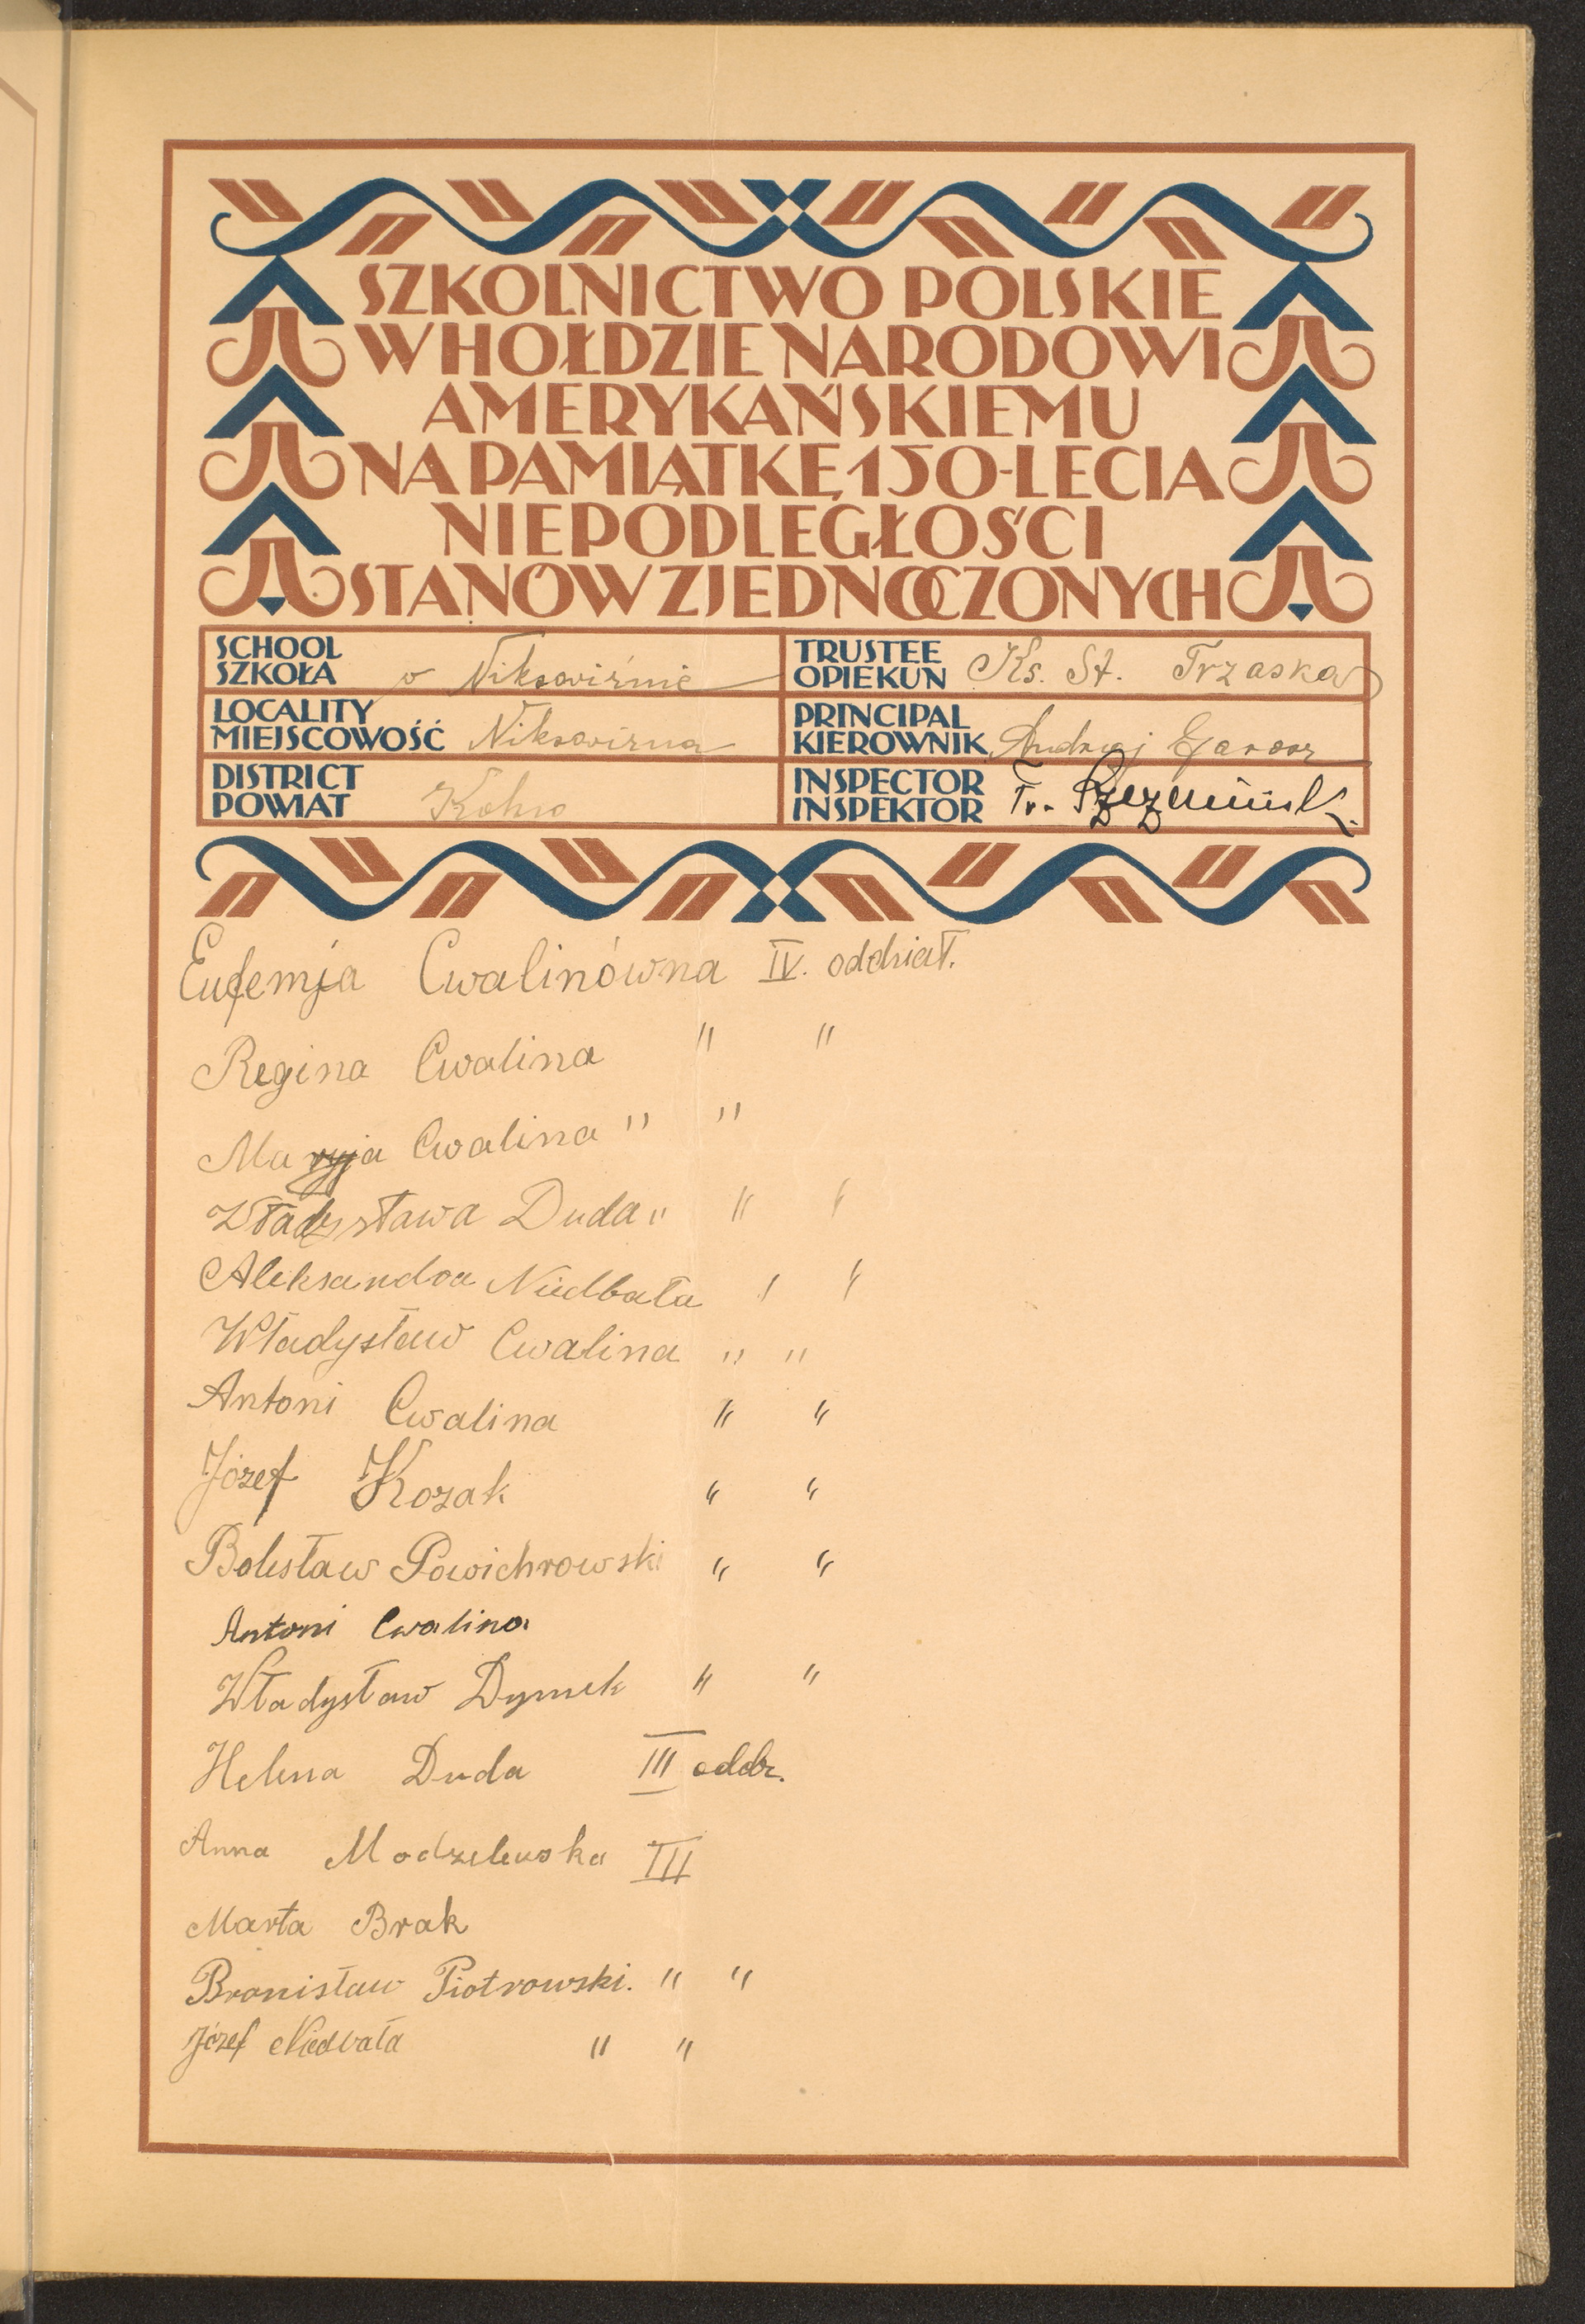 SZKOLNICTWO POLSKIE
W HOŁDZIE NARODOWI
AMERYKAŃSKIEMU
NA PAMIĄTKĘ 150-LECIA
NIEPODLEGŁOŚCI
STANÓW ZJEDNOCZONYCH
SCHOOL
SZKOŁA w Niksowiźnie
TRUSTEE
OPIEKUN Ks. St. Trzaska
LOCALITY
MIEJSCOWOŚĆ Niksowizna
PRINCIPAL
KIEROWNIK Andrzej
DISTRICT
POWIAT Kolno
INSPECTOR
INSPEKTOR
Eufemja Cwalinówna IV. oddział.
Regina Cwalina " "
Maryja Cwalina " "
Władysława Duda " " "
Aleksandra Niedbała " "
Władysław Cwalina " "
Antoni Cwalina " "
Józef Kozak " "
Bolesław Powichrowski " "
Antoni Cwalina
Władysław Dymek " "
Helena Duda III oddz.
Anna Modzelewska III
Marta Brak
Bronisław Piotrowski. " "
Józef Niedbała " "